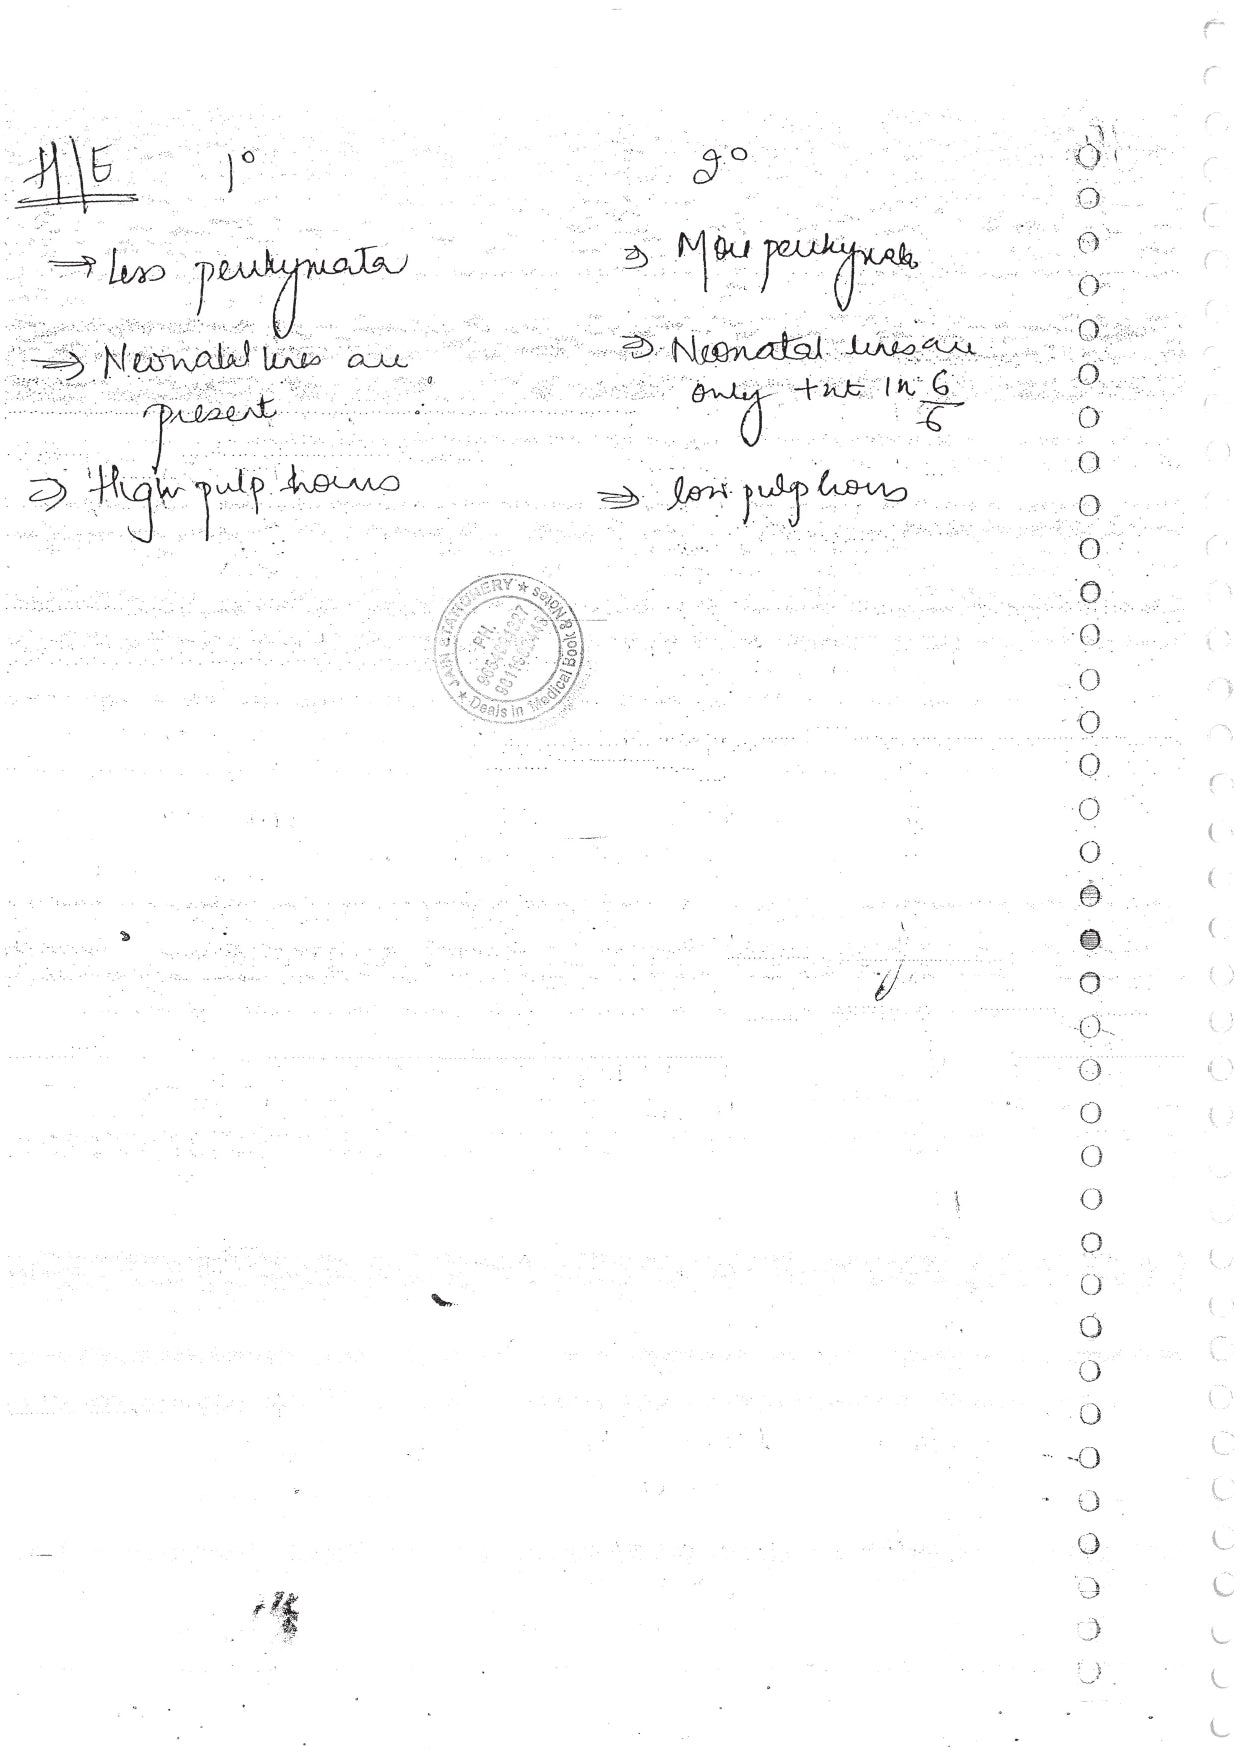 H/E 1° 2°
⇒ Less perikymata
⇒ More perikymata
⇒ Neonatal lines are
present
⇒ Neonatal lines are
only +nt in 6/6
⇒ High pulp horns
⇒ low pulp horns
JAIN STATIONERY ★ Deals in Medical Book & Notes ★
PH.